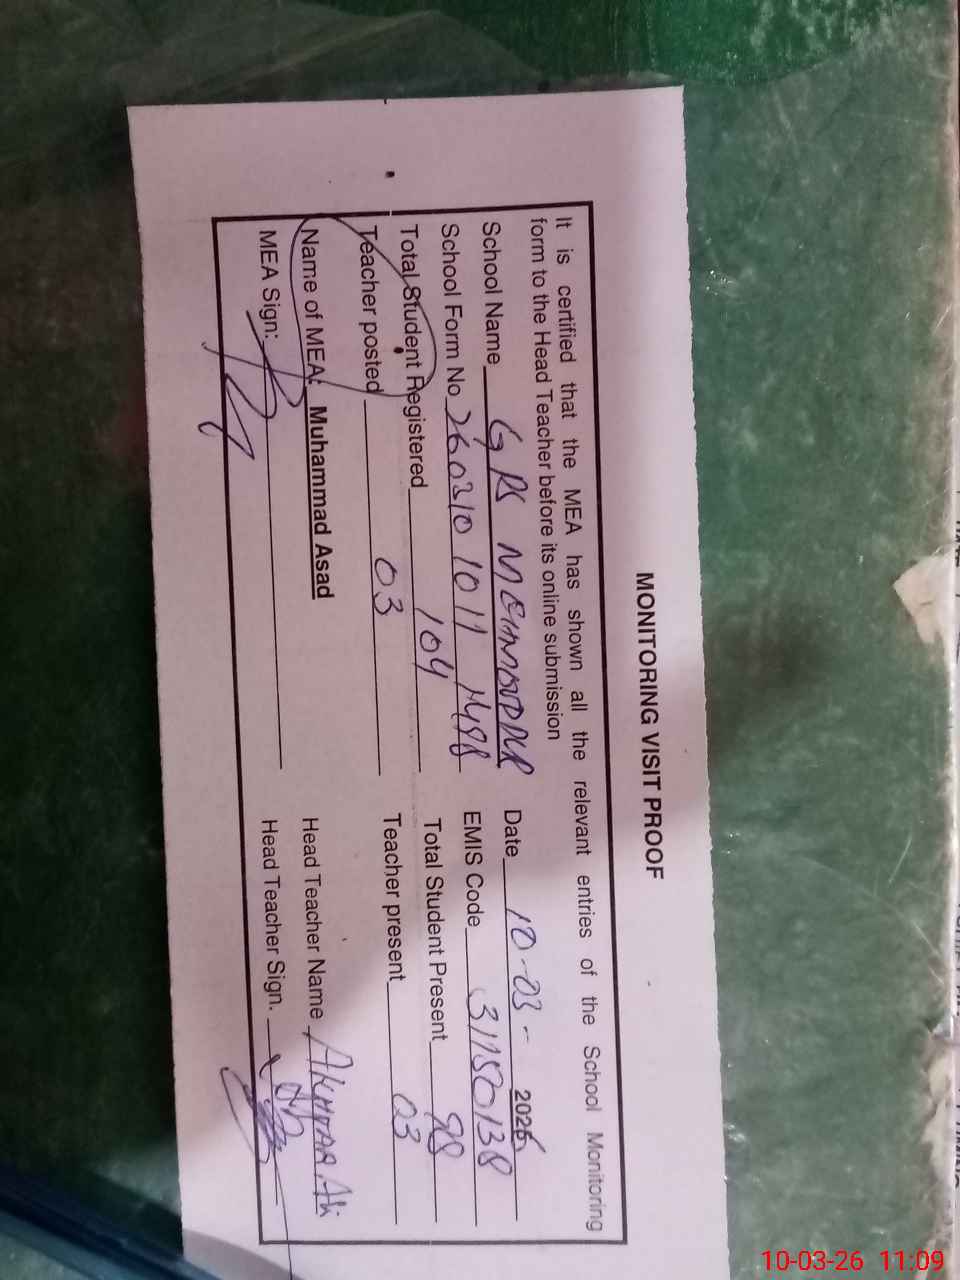 MONITORING VISIT PROOF
It is certified that the MEA has shown all the relevant entries of the School Monitoring
form to the Head Teacher before its online submission
School Name GPS Date 10-03-2026
School Form No 26031010111498 EMIS Code 31150138
Total Student Registered 104 Total Student Present 98
Teacher posted 03 Teacher present 03
Name of MEA: Muhammad Asad Head Teacher Name Ali
MEA Sign: Head Teacher Sign.
10-03-26 11:09